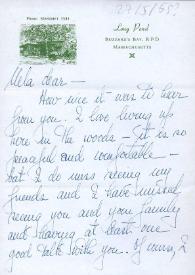 27/5/65?
Long Pond
Buzzard's Bay, R.F.D.
Massachusetts
dear —
How nice it was to hear
from you. I love living up
here in the woods — It is so
peaceful and comfortable —
but I do miss seeing my
friends and I have missed
seeing you and your family
and having at least one
good talk with you. Of course, I